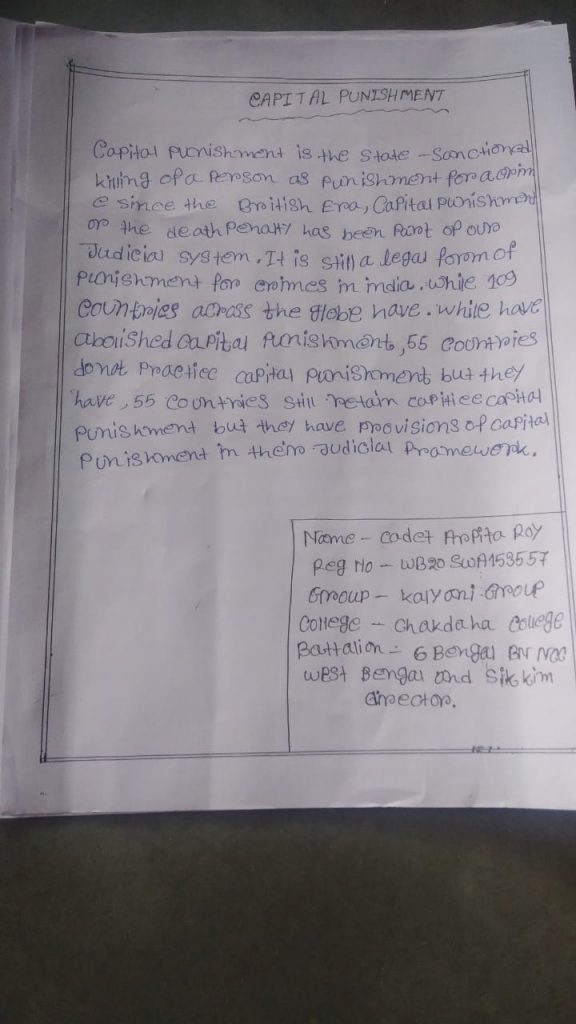 CAPITAL PUNISHMENT
Capital punishment is the state - Sanctioned
killing of a person as punishment for a crim
e since the British Era, Capital punishment
or the death Penalty has been Part of our
Judicial system. It is still a legal form of
punishment for crimes in india. while 109
countries across the globe have. while have
abolished capital Punishment, 55 countries
do not Practice capital punishment but they
have, 55 countries still retain capitiee capital
punishment but they have provisions of capital
Punishment in their Judicial Framework.
Name - cadet Arpita Roy
Reg No - WB20SWA153557
Group - kalyani Group
College - Chakdaha College
Battalion - 6 Bengal BN NCC
West Bengal and Sikkim
director.